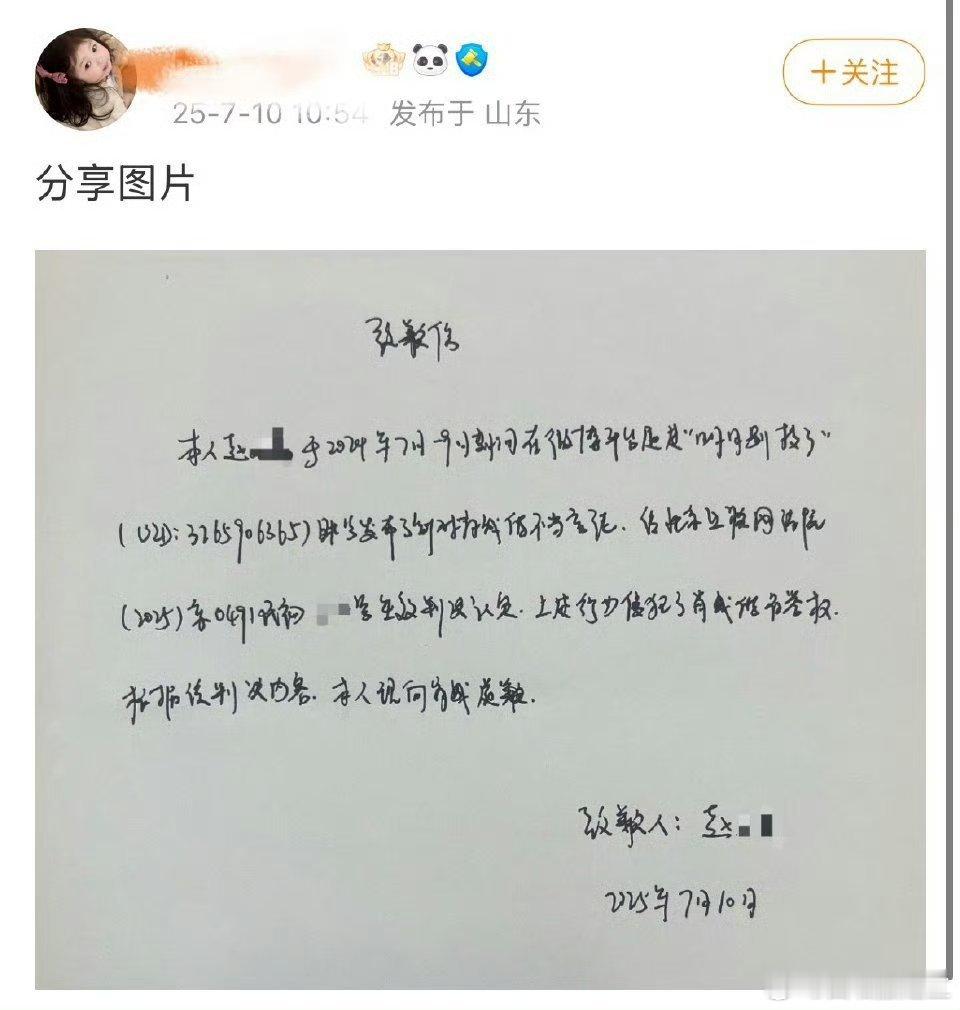 25-7-10 10:54 发布于 山东
+关注
分享图片
致歉信
本人赵 于2024年7月-9月期间在微博平台通过"呵呵别投了"
(UID:3265906365)账号发布了针对肖战的不当言论.经北京互联网法院
(2025)京0491民初 号生效判决认定.上述行为侵犯了肖战的名誉权.
根据该判决内容.本人现向肖战道歉.
致歉人:赵
2025年7月10日